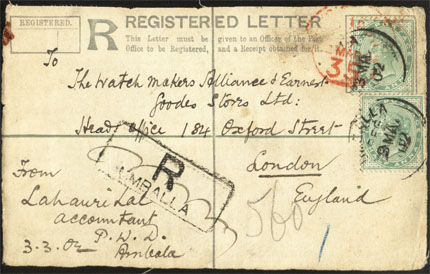 REGISTERED.
R
REGISTERED LETTER
This Letter must be given to an Officer of the Post
Office to be Registered, and a Receipt obtained for it.
To
The Watch Makers Alliance & Earnest
Goodes Stores Ltd:
Head office 184 Oxford Street
London
England
R
UMBALLA
From
Lahauri Lal
accountant
P.W.D.
Umbala
3.3.02
560